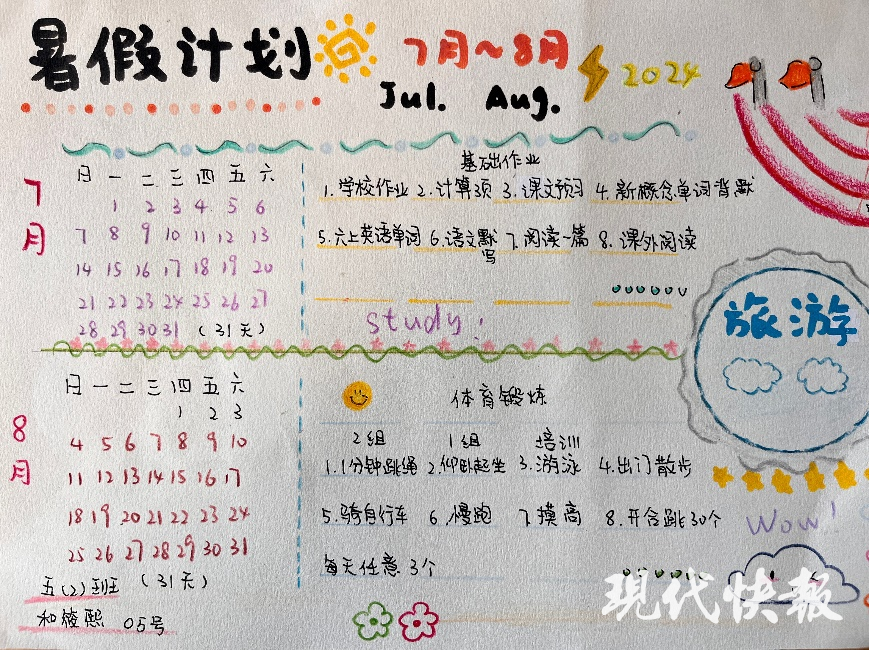 暑假计划
7月~8月
Jul. Aug.
2024
7月
日 一 二 三 四 五 六
1 2 3 4 5 6
7 8 9 10 11 12 13
14 15 16 17 18 19 20
21 22 23 24 25 26 27
28 29 30 31 (31天)
基础作业
1.学校作业 2.计算3页 3.课文预习 4.新概念单词背默
5.六上英语单词 6.语文默写 7.阅读一篇 8.课外阅读
study!
旅游
8月
日 一 二 三 四 五 六
1 2 3
4 5 6 7 8 9 10
11 12 13 14 15 16 17
18 19 20 21 22 23 24
25 26 27 28 29 30 31
(31天)
体育锻炼
2组 1组 培训
1.1分钟跳绳 2.仰卧起坐 3.游泳 4.出门散步
5.骑自行车 6.慢跑 7.摸高 8.开合跳30个
每天任意3个
Wow!
五(2)班
和 熙 05号
现代快報